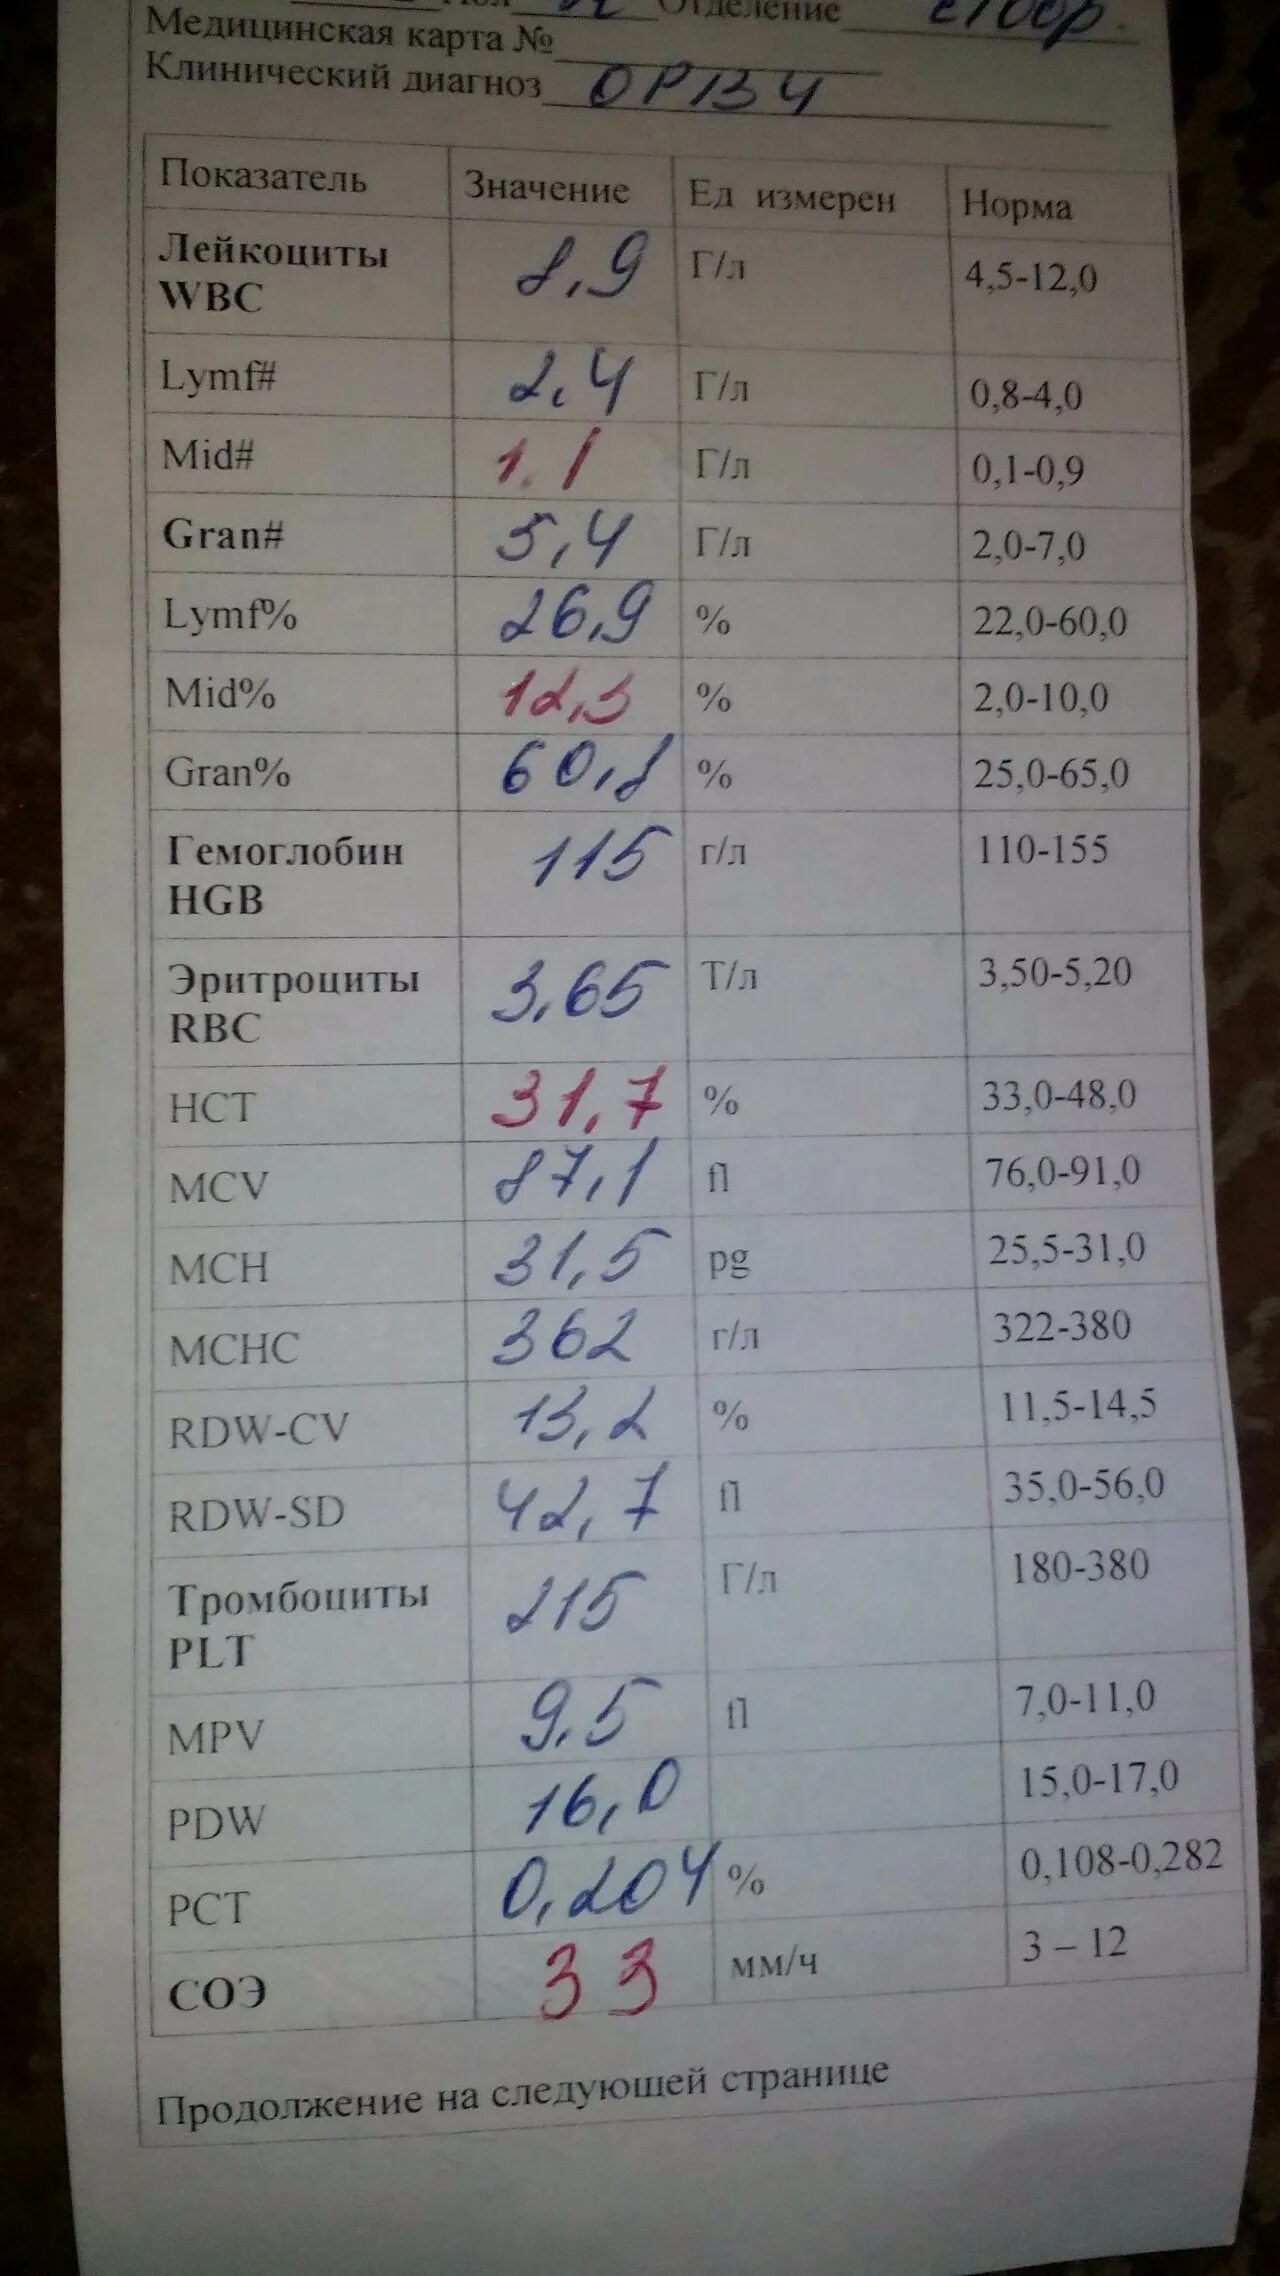 Отделение
Медицинская карта №
Клинический диагноз ОРВИ
Показатель Значение Ед измерен Норма
Лейкоциты 8,9 Г/л 4,5-12,0
WBC
Lymf# 2,4 Г/л 0,8-4,0
Mid# 1.1 Г/л 0,1-0,9
Gran# 5,4 Г/л 2,0-7,0
Lymf% 26,9 % 22,0-60,0
Mid% 12,3 % 2,0-10,0
Gran% 60,8 % 25,0-65,0
Гемоглобин 115 г/л 110-155
HGB
Эритроциты 3,65 Т/л 3,50-5,20
RBC
HCT 31,7 % 33,0-48,0
MCV 87,1 fl 76,0-91,0
MCH 31,5 pg 25,5-31,0
MCHC 362 г/л 322-380
RDW-CV 13,2 % 11,5-14,5
RDW-SD 42,7 fl 35,0-56,0
Тромбоциты 215 Г/л 180-380
PLT
MPV 9,5 fl 7,0-11,0
PDW 16,0 15,0-17,0
PCT 0,204 % 0,108-0,282
СОЭ 33 мм/ч 3 – 12
Продолжение на следующей странице